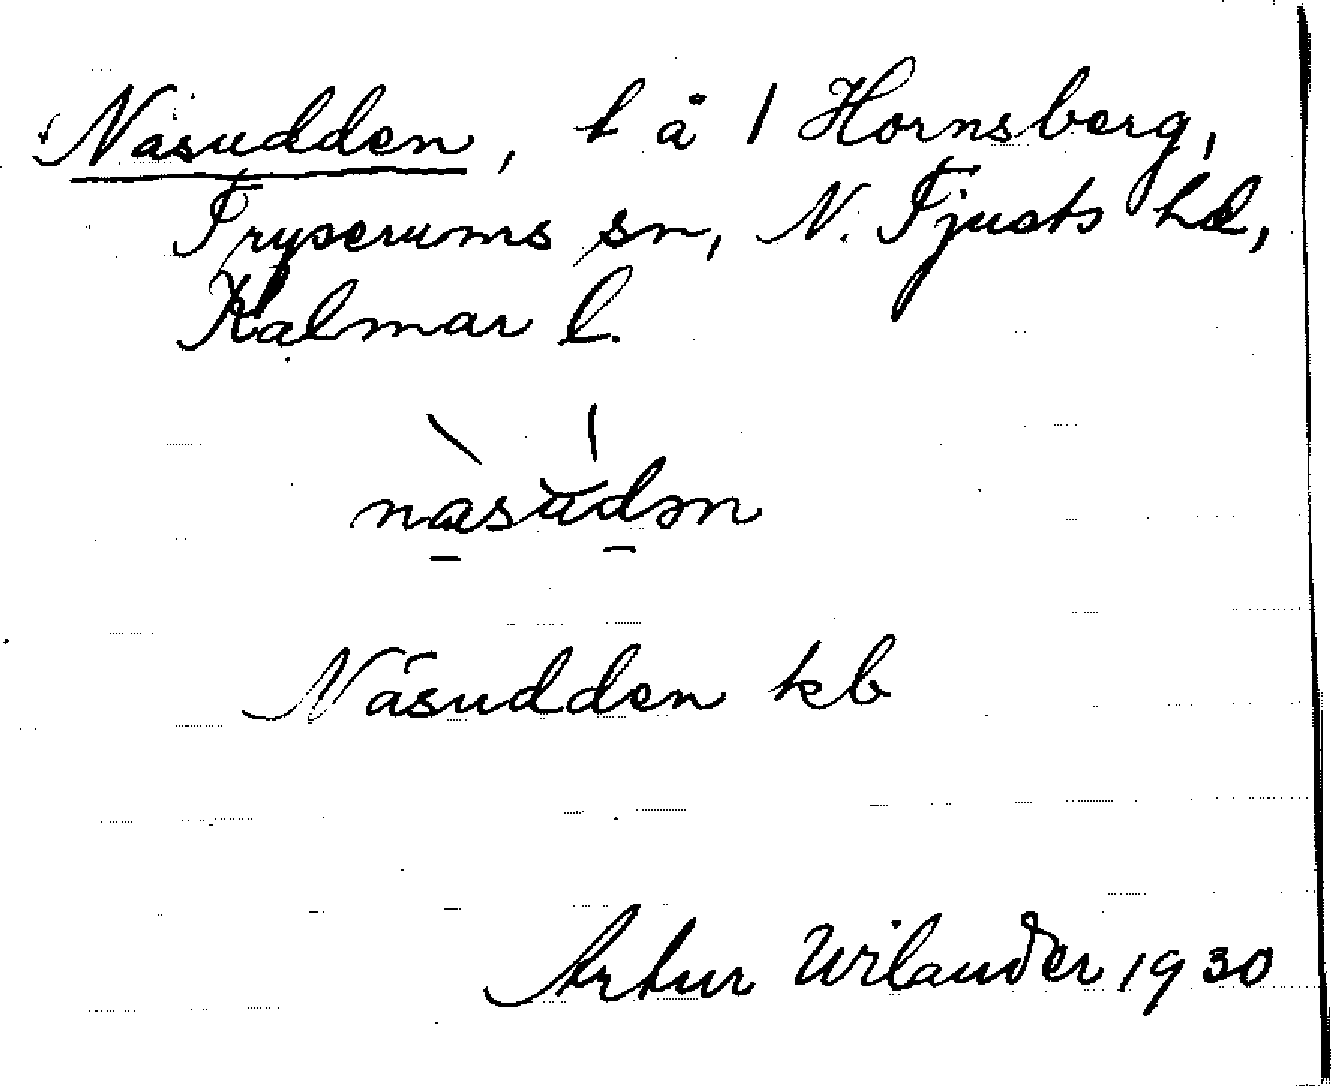 Näsudden, t å 1 Hornsberg,
Tryserums sn, N. Tjusts hd,
Kalmar l.
näsudn
Näsudden kb
Artur Wilander 1930